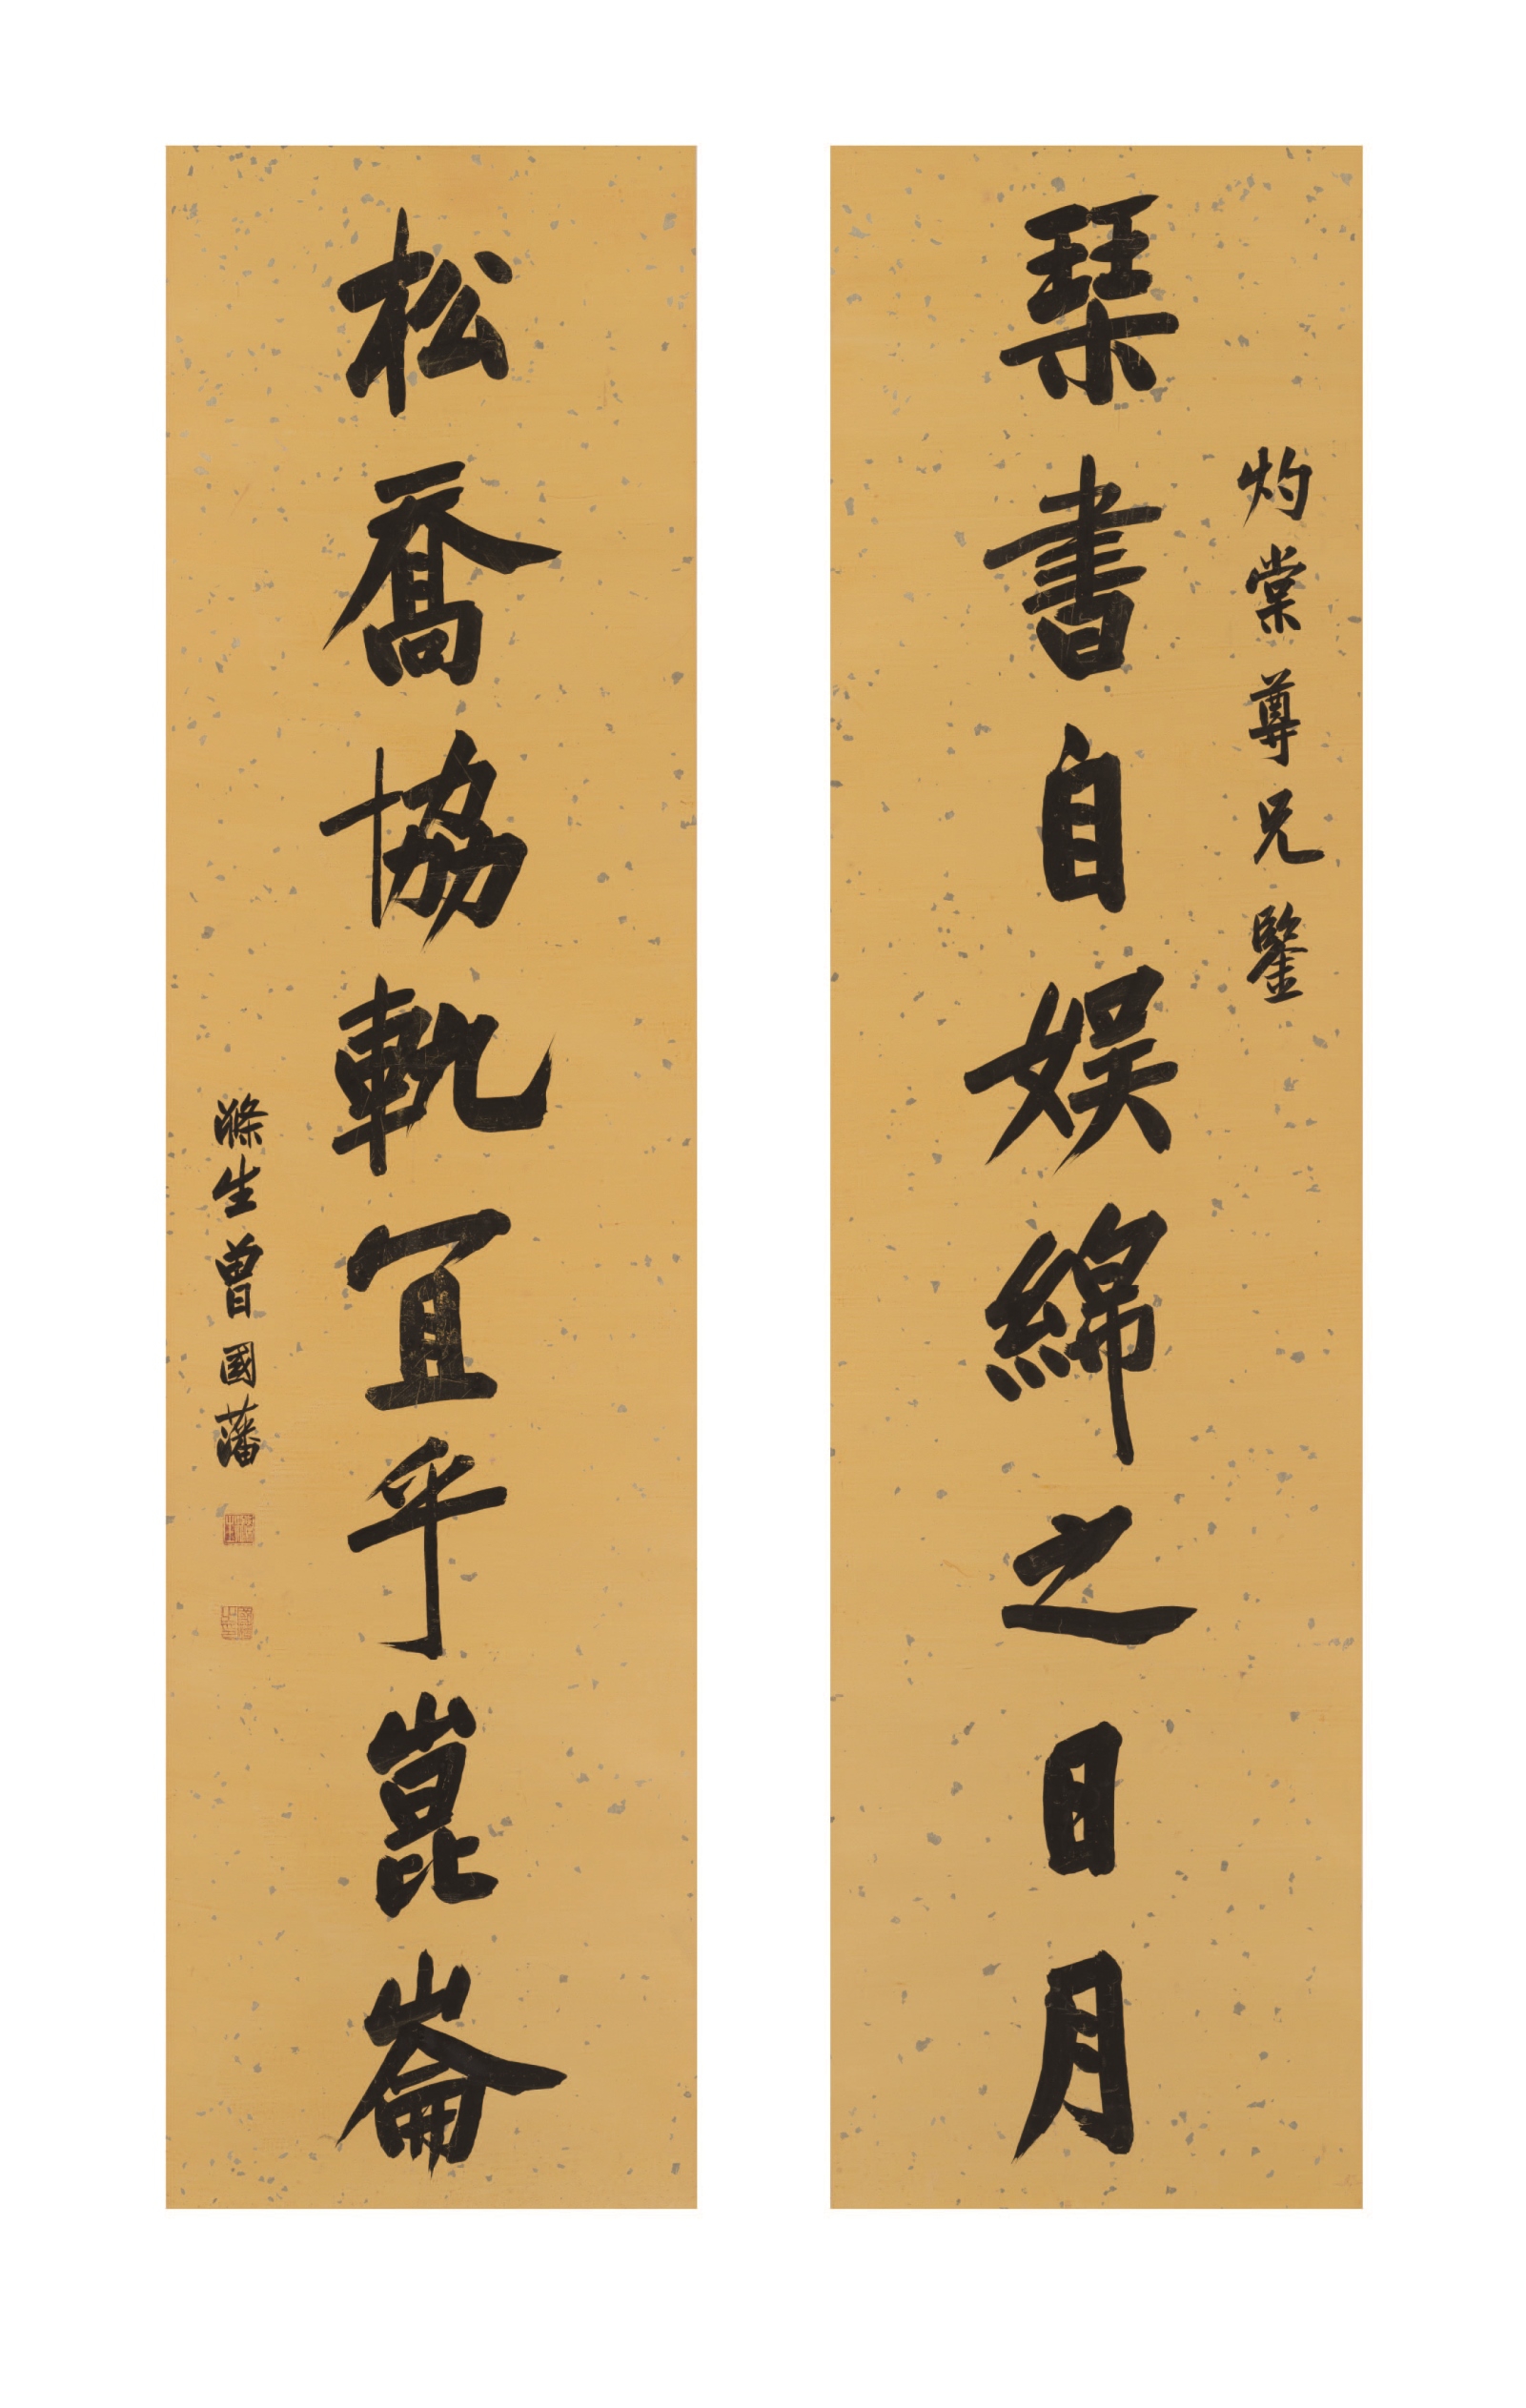 灼棠尊兄鑒
琹書自娱綿之日月
松喬協軌宜乎崑崙
滌生曾國藩